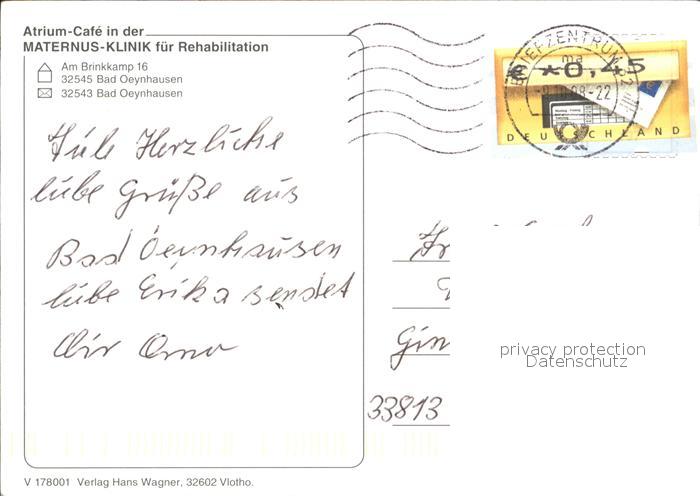 Atrium-Café in der
MATERNUS-KLINIK für Rehabilitation
Am Brinkkamp 16
32545 Bad Oeynhausen
32543 Bad Oeynhausen
Herzliche
liebe Grüße aus
Bad Oeynhausen
liebe Erika sendet
Dir Oma
BRIEFZENTRUM 32
ma
€ *0,45
-22
DEUTSCHLAND
Fr
Gin
33813
privacy protection
Datenschutz
V 178001 Verlag Hans Wagner, 32602 Vlotho.